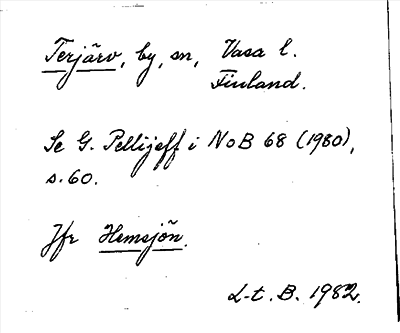 Terjärv, by, sn, Vasa l.
Finland.
Se G. Pellijeff i NoB 68 (1980),
s. 60.
Jfr Hemsjön.
L-t. B. 1982.